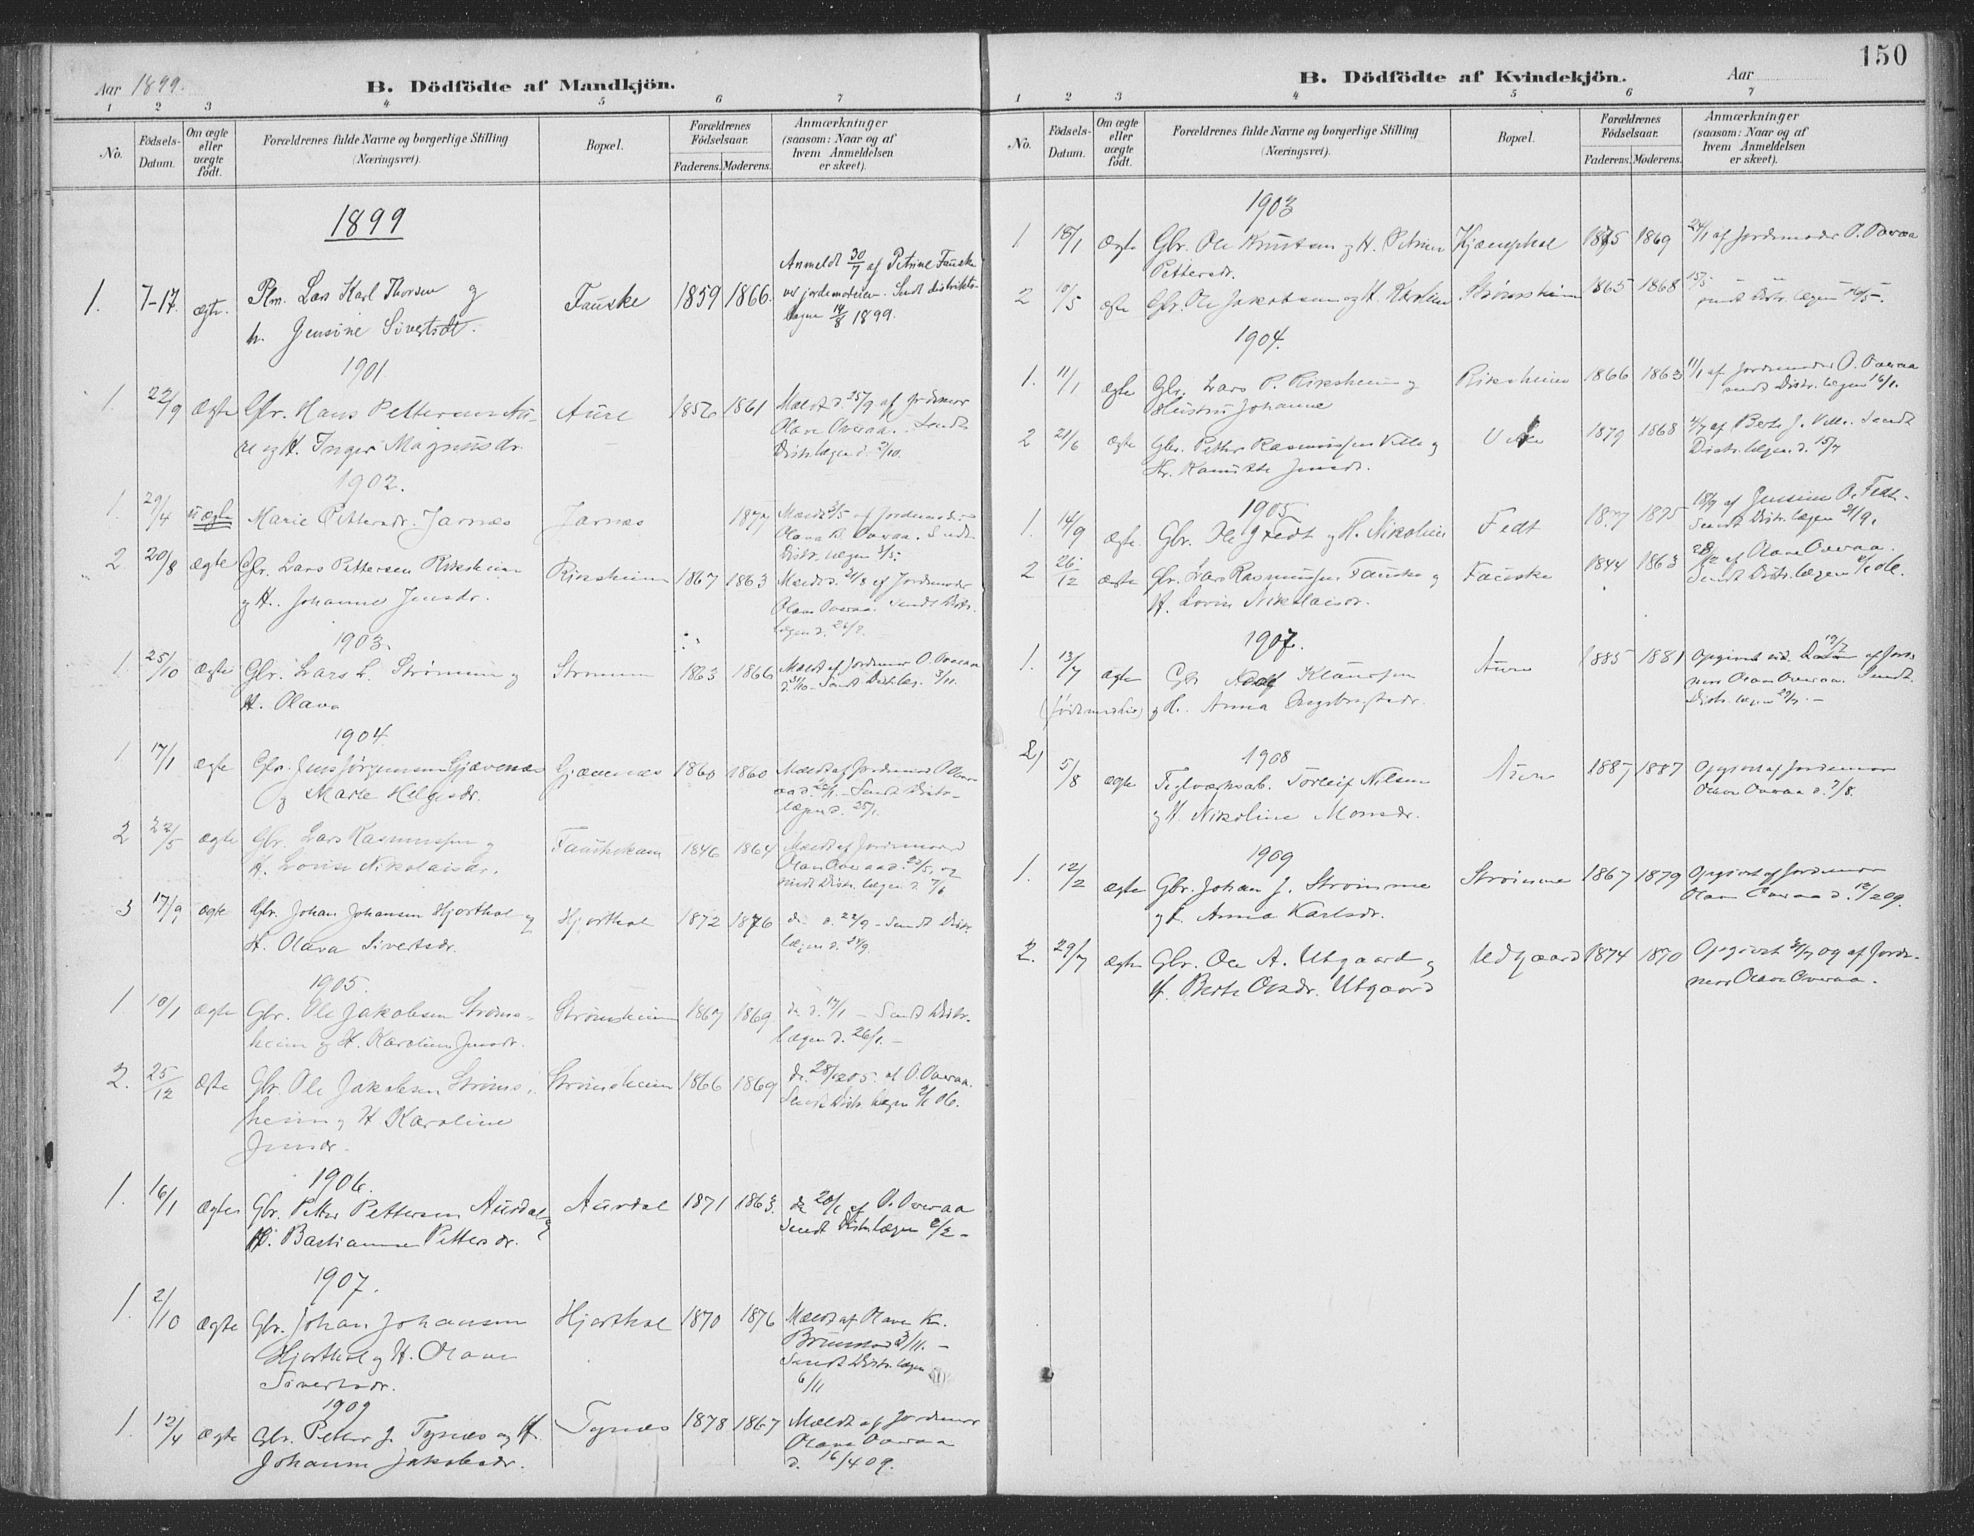 Aar 1899.
B. Dödfödte af Mandkjön.
1 2 3 4 5 6 7
No.
Födsels-Datum.
Om ægte eller uægte födt.
Forældrenes fulde Navne og borgerlige Stilling (Næringsvei).
Bopæl.
Forældrenes Födselsaar.
Faderens. Moderens.
Anmærkninger (saasom: Naar og af hvem Anmeldelsen er skeet).
1899
1. 7-17 ægte. Plm. Lars Karl Thorsen og Fauske 1859 1866. Anmeldt 30/7 af Petrine Fauske
h. Jensine Sivertsdt. ved jordemoderen. Sendt distrikts-
lægen 18/8 1899.
1901
1. 22/9 ægte Gbr. Hans Pettersen Au- Aure 1856 1861 Meldt d. 25/9 af Jordemor
re og H. Inger Magnusdr. Olave Overaa. Sendt
Distr.lægen d. 2/10.
1902.
1. 29/4 uægte Marie Pettersdr. Jarnæs Jarnæs 1877 Meldt 3/5 af Jordemoder
Overaa. Sendt
Distr.lægen 5/5.
2. 20/8 ægte Gbr. Lars Pettersen Riksheim Riksheim 1867 1863 Meldt d. 21/8 af Jordemoder
og H. Johanne Jensdr. Olave Overaa. Sendt Distr.
lægen d.
1903.
1. 25/10 ægte Gbr. Lars L. Strømme og Strømme 1863 1866 Meldt af Jordemor O. Overaa
H. Olava d. 31/10 - Sendt Distr.læg. 3/11.
1904
1. 17/1 ægte Gbr. Jens Jørgensen Gjævenæs Gjævenæs 1860 1860 Meldt af Jordemor O. Over-
og Marie Helgesdr. aa d. 22/1. - Sendt Distr-
lægen d. 25/1.
2 22/5 ægte Gbr. Lars Rasmussen og 1846 1864 Meldt af Jordemoder
H. Lovise Nikolaisdr. Olave Overaa d. 25/5, og
sendt Distr.lægen d. 7/6
3 17/9 ægte Gbr. Johan Johansen Hjorthol og Hjorthol 1872 1876 do d. 22/9 - Sendt Distr.
H. Olava Sivertsdr. lægen d. 24/9.
1905.
1. 10/1 ægte Gbr. Ole Jakobsen Strøms- Strømsheim 1867 1869 do d. 17/1 - Sendt Distr.
heim og H. Karoline Jensdr. lægen d. 26/1. -
2. 25/12 ægte Gbr. Ole Jakobsen Strøms- Strømsheim 1866 1869 do. 28/12 05. af O. Overaa.
heim og H. Karoline Sendt Distr.lægen 8/1 06.
Jensdr.
1906.
1. 16/1 ægte Gbr. Petter Pettersen Aurdal og Aurdal 1871 1863. do 20/1 af O. Overaa
H. Bastianne Pettersdr. Sendt Distr.lægen 2/2 -
1907.
1. 2/10 ægte Gbr. Johan Johansen Hjorthol 1870 1876 Meldt af Olave Kn.
Hjorthol og H. Olave Brunstad 3/11. -
Sivertsdr. Sendt Distr.lægen
6/11
1909
1. 12/4 ægte Gbr. Petter J. Tynæs og H. Tynæs 1878 1867 Meldt af Jordemor
Johanne Jakobsdr. Olave Overaa
d. 16/4 09.
150
B. Dödfödte af Kvindekjön.
Aar
1 2 3 4 5 6 7
No.
Födsels-Datum.
Om ægte eller uægte födt.
Forældrenes fulde Navne og borgerlige Stilling (Næringsvei).
Bopæl.
Forældrenes Födselsaar.
Faderens. Moderens.
Anmærkninger (saasom: Naar og af hvem Anmeldelsen er skeet).
1903
1 18/1 ægte Gbr. Ole Knutsen og H. Petrine 1875 1869 24/1 af Jordemoder O. Overaa
Pettersdr.
2 10/5 ægte Gbr. Ole Jakobsen og H. Karoline Strømsheim 1865 1868 15/5
sendt Distr.lægen
1904.
1. 11/1 ægte Gbr. Lars P. Riksheim og Riksheim 1866 1863 11/1 af Jordemoder O. Overaa
Hustru Johanne sendt Distr.lægen 16/1.
2 21/6 ægte Gbr. Petter Rasmussen Velle og 1879 1868 af Berte J. Velle. Sendt
Hr. Jensdr. Distr.lægen d. 15/7
1905
1. 14/9 ægte. Gbr. Ole J Fedt og H. Nikoline Fedt 1875 18/9 af Jensine O. Fedt.
Sendt Distr.lægen 21/9.
2 26/12 ægte Gbr. Lars Rasmussen Fauske og Fauske 1844 1863 28/12 af Olave Overaa.
H. Lovise Nikolaisdr. Sendt Distr.lægen 8/1 06.
1907.
1. 13/7 ægte Gbr Klaussen Aure 1885 1881 Opgivet af Jorde-
og H. Anna Ingebrigtsdr. mor Olave Overaa. Sendt
Distr.lægen 29/7. -
1908
2) 5/8 ægte Teglværksarb. Torleif Nilsen Aure 1887 1887 Opgivet af Jordemor
og H. Nikoline Monsdr. Olave Overaa d. 7/8.
1909
1. 12/2 ægte Gbr. Johan J. Strømme Strømme 1867 1879 Opgivet af Jordemor
og H. Anna Karlsdr. Olave Overaa d. 12/2 09.
2. 29/7 ægte Gbr. Ole A. Utgaard og Udgaard 1874 1870 Opgivet 31/7 09 af Jorde-
H. Berte Olsdr. Utgaard mor Olave Overaa.